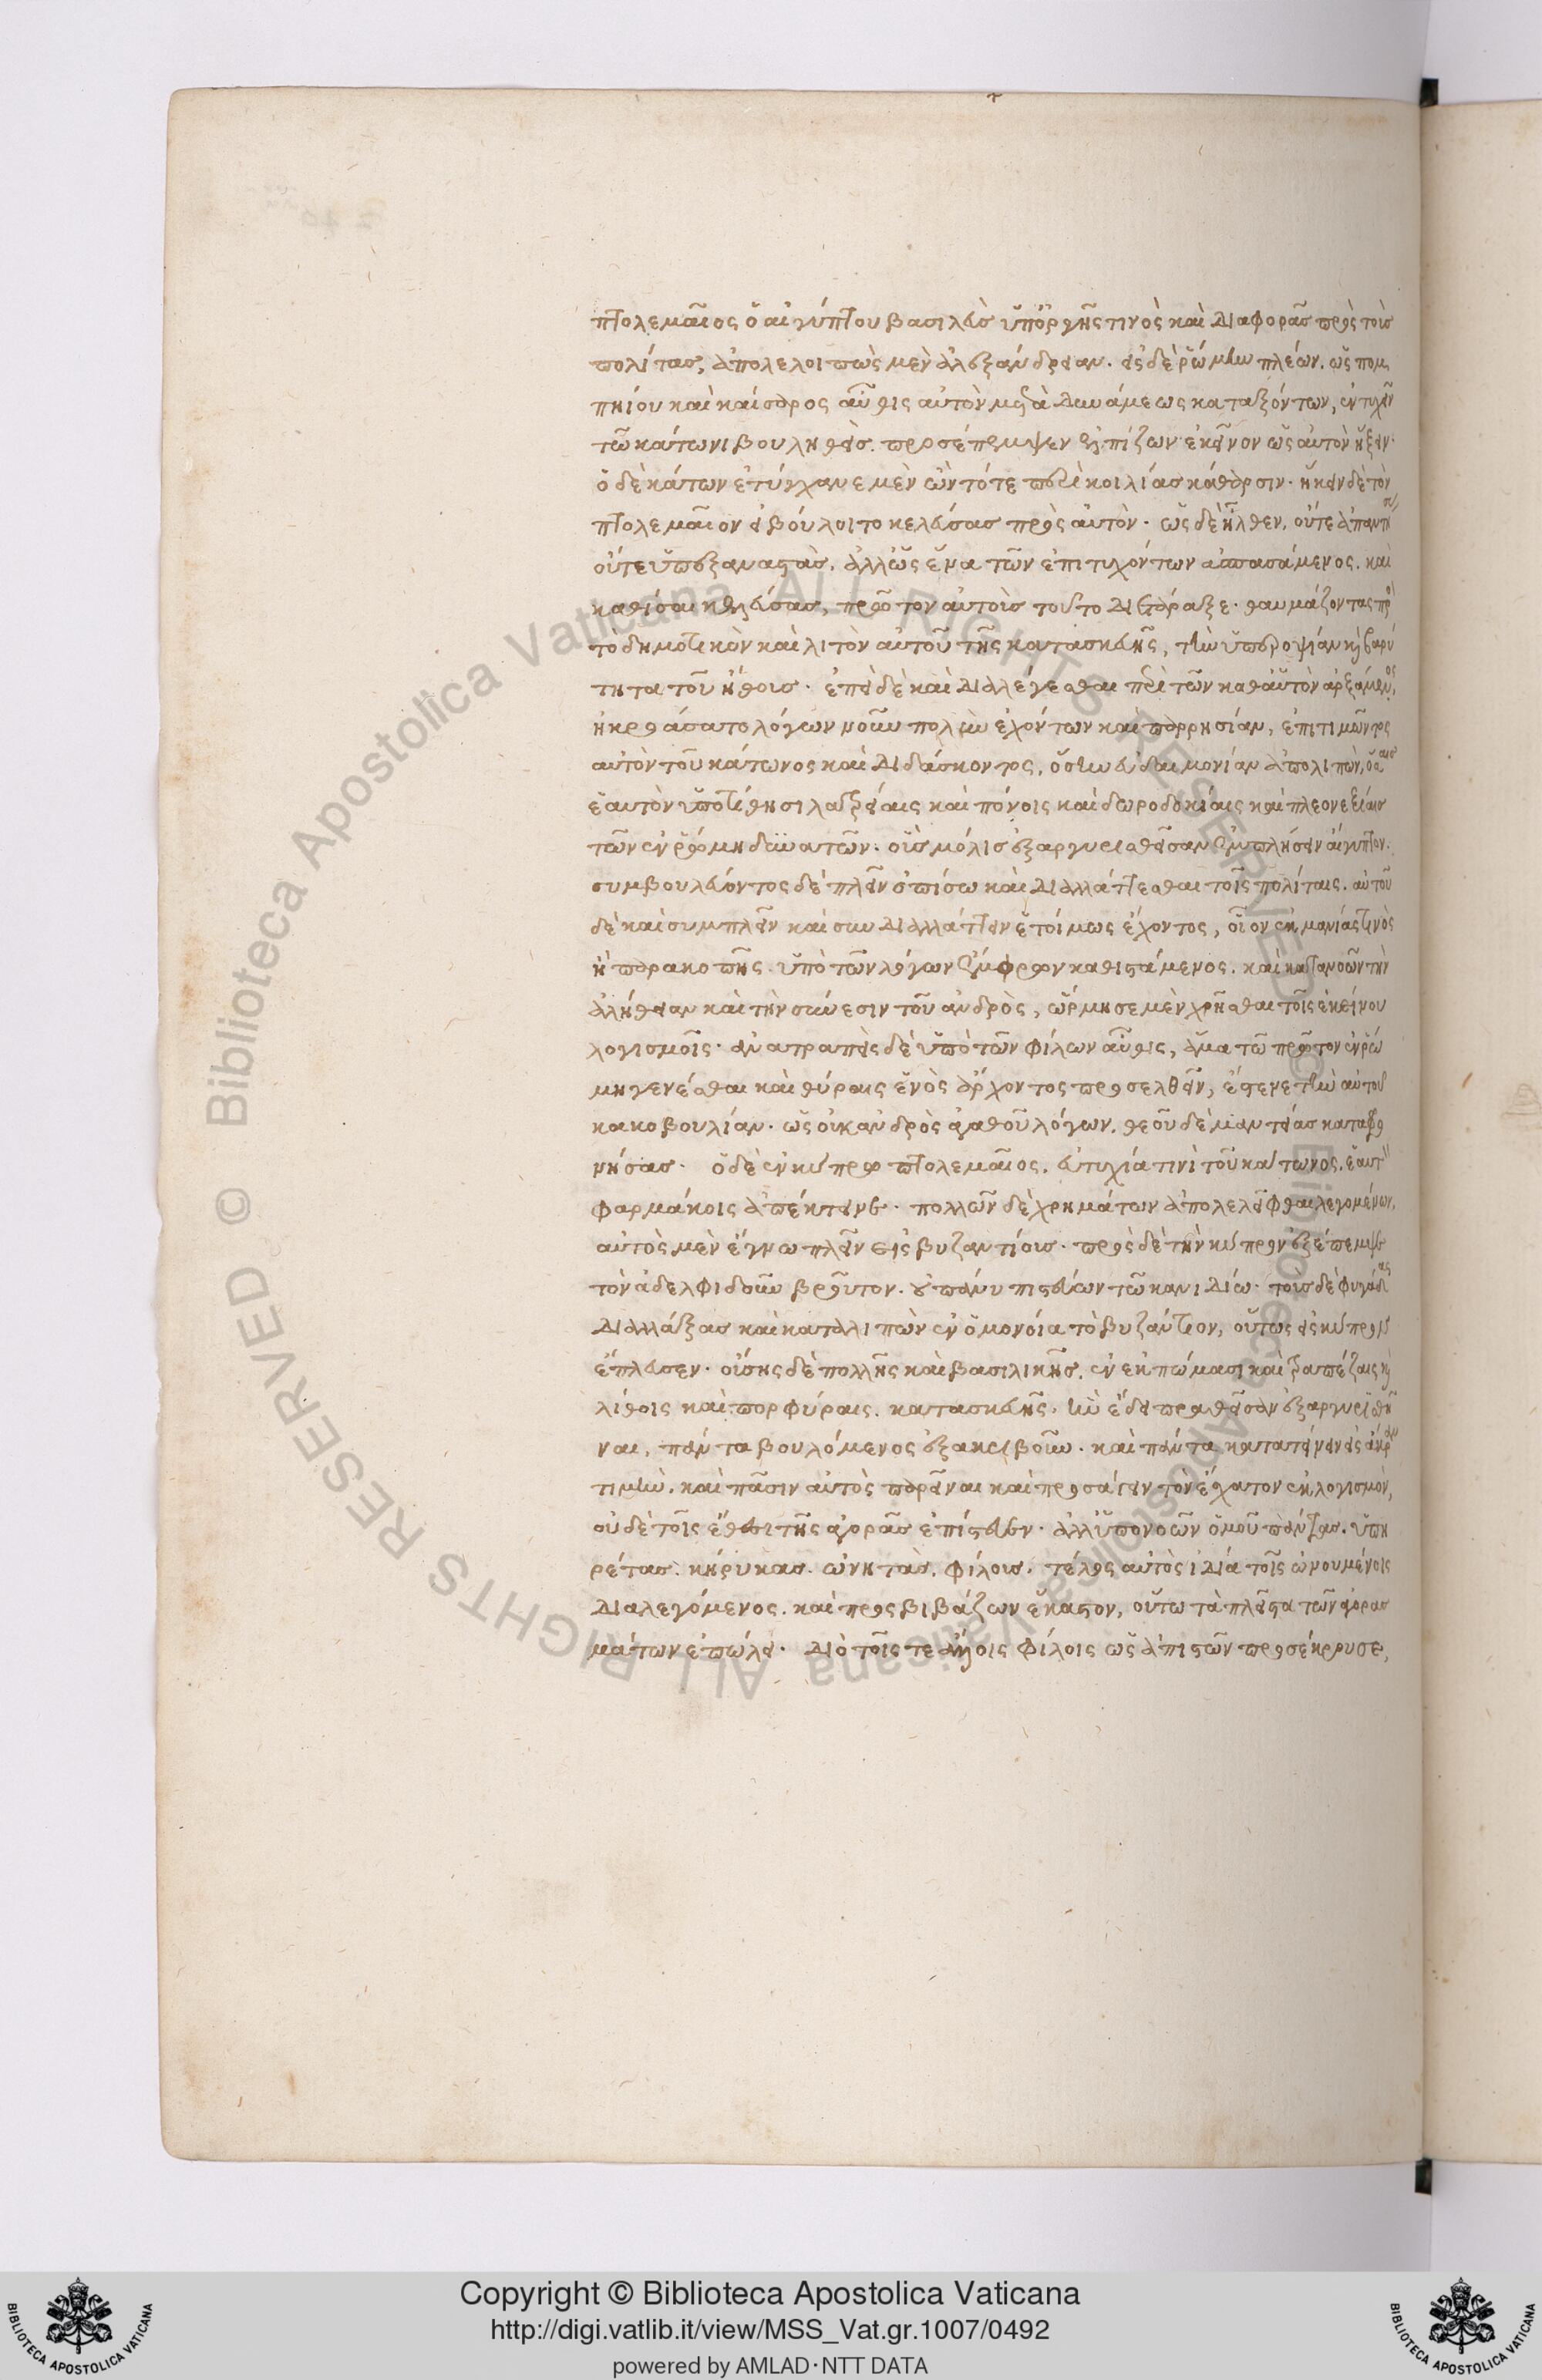 πτολεμαῖος ὁ αἰγύπτου βασιλεὺς ὑπ' ὀργῆς τινὸς καὶ διαφορᾶς πρὸς τοὺς
πολίτας, ἀπολελοιπὼς μὲν ἀλεξάνδρειαν. εἰς δὲ ῥώμην πλέων. ὡς πομ
πηίου καὶ καίσαρος αὖθις αὐτὸν μετὰ δυνάμεως καταξόντων, ἐντυχεῖν
τῶ κάτωνι βουληθεὶς. προσέπεμψεν ἐλπίζων ἐκεῖνον ὡς αὐτὸν ἥξειν.
ὁ δὲ κάτων ἐτύγχανε μὲν ὢν τότε περὶ κοιλίας κάθαρσιν. ἥκειν δὲ τὸν
πτολεμαῖον εἰ βούλοιτο κελεύσας πρὸς αὐτὸν. ὡς δὲ ἦλθεν, οὔτε ἀπαντή
οὔτε ὑπεξαναστὰς. ἀλλ' ὡς ἕνα τῶν ἐπιτυχόντων ἀσπασάμενος. καὶ
καθίσαι κελεύσας, πρῶτον αὐτοῖς τούτο διετάραξε. θαυμάζοντας πρὸ
τὸ δημοτικὸν καὶ λιτὸν αὐτοῦ τῆς κατασκευῆς, τὴν ὑπεροψίαν καὶ βαρύ
τητα τοῦ ἤθους. ἐπεὶ δὲ καὶ διαλέγεσθαι περὶ τῶν καθ' αὑτὸν ἀρξάμενος,
ἠκροάσατο λόγων νοῦν πολὺν ἐχόντων καὶ παρρησίαν, ἐπιτιμῶντος
αὐτὸν τοῦ κάτωνος καὶ διδάσκοντος, ὅσην εὐδαιμονίαν ἀπολιπὼν, ὅσαις
ἑαυτὸν ὑποτίθησι λατρείαις καὶ πόνοις καὶ δωροδοκίαις καὶ πλεονεξίαις
τῶν ἐν ῥώμη δυνατῶν. οὓς μόλις ἐξαργυρισθεῖσαν ἐμπλήσειν αἴγυπτον.
συμβουλεύοντος δὲ πλεῖν ὀπίσω καὶ διαλλάττεσθαι τοῖς πολίταις. αὐτοῦ
δὲ καὶ συμπλεῖν καὶ συνδιαλλάττειν ἑτοίμως ἔχοντος, οἷον ἐκ μανίας τινὸς
ἢ παρακοπῆς. ὑπὸ τῶν λόγων ἔμφρων καθιστάμενος. καὶ κατανοῶν τὴν
ἀλήθειαν καὶ τὴν σύνεσιν τοῦ ἀνδρὸς, ὥρμησε μὲν χρῆσθαι τοῖς ἐκείνου
λογισμοῖς. ἀνατραπεὶς δὲ ὑπὸ τῶν φίλων αὖθις, ἅμα τῶ πρῶτον ἐν ῥώ
μη γενέσθαι καὶ θύραις ἑνὸς ἄρχοντος προσελθεῖν, ἔστενε τὴν αὑτοῦ
κακοβουλίαν. ὡς οὐκ ἀνδρὸς ἀγαθοῦ λόγων. θεοῦ δὲ μαντείας καταφρο
νήσας. ὁ δὲ ἐν κύπρω πτολεμαῖος. εὐτυχία τινὶ τοῦ κάτωνος. ἑαυτὸν
φαρμάκοις ἀπέκτεινε. πολλῶν δὲ χρημάτων ἀπολελεῖφθαι λεγομένων,
αὐτὸς μὲν ἔγνω πλεῖν εἰς βυζαντίους. πρὸς δὲ τὴν κύπρον ἐξέπεμψε
τὸν ἀδελφιδοῦν βροῦτον. οὐ πάνυ πιστεύων τῶ κανιδίω. τοὺς δὲ φυγάδας
διαλλάξας καὶ καταλιπὼν ἐν ὁμονοία τὸ βυζάντιον, οὕτως εἰς κύπρον
ἔπλευσεν. οὔσης δὲ πολλῆς καὶ βασιλικῆς. ἐν ἐκπώμασι καὶ τραπέζαις καὶ
λίθοις καὶ πορφύραις. κατασκευῆς. ἣν ἔδει πραθεῖσαν ἐξαργυρισθῆ
ναι, πάντα βουλόμενος ἐξακριβοῦν. καὶ πάντα κατατείνειν εἰς ἄκραν
τιμὴν. καὶ πᾶσιν αὐτὸς παρεῖναι καὶ προσάγειν τὸν ἔσχατον ἐκλογισμὸν,
οὐδὲ τοῖς ἔθεσι τῆς ἀγορᾶς ἐπίστευεν. ἀλλ' ὑπονοῶν ὁμοῦ πάντας. ὑπη
ρέτας. κήρυκας. ὠνητὰς. φίλους. τέλος αὐτὸς ἰδία τοῖς ὠνουμένοις
διαλεγόμενος. καὶ προσβιβάζων ἕκαστον, οὕτω τὰ πλεῖστα τῶν ἀγορασ
μάτων ἐπώλει. διὸ τοῖς τε ἄλλοις φίλοις ὡς ἀπιστῶν προσέκρουσε,
Copyright © Biblioteca Apostolica Vaticana
http://digi.vatlib.it/view/MSS_Vat.gr.1007/0492
powered by AMLAD·NTT DATA
BIBLIOTECA APOSTOLICA VATICANA
BIBLIOTECA APOSTOLICA VATICANA
© Biblioteca Apostolica Vaticana ALL RIGHTS RESERVED
© Biblioteca Apostolica Vaticana ALL RIGHTS RESERVED